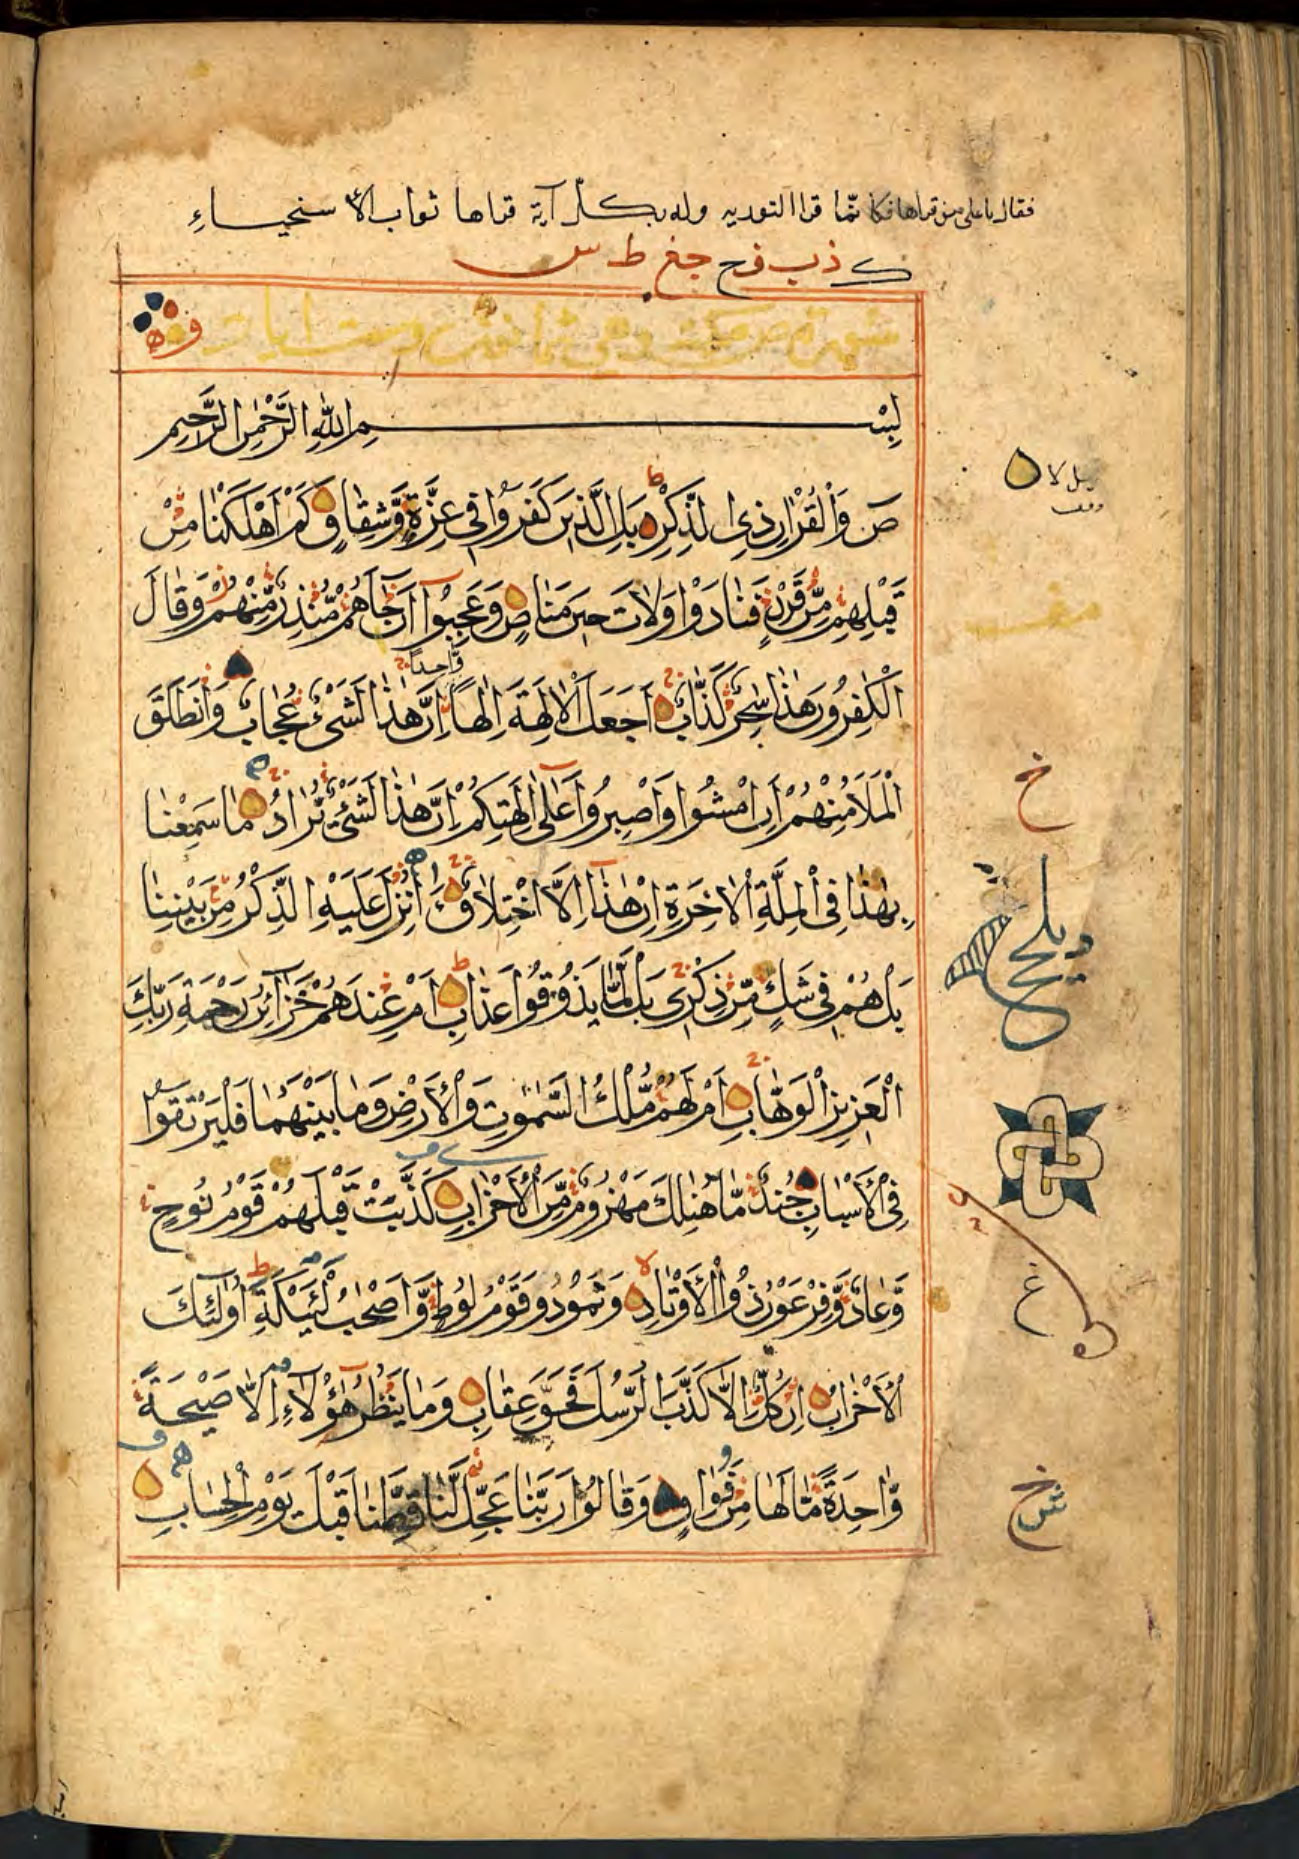 فقال يا علي من قراها فكانما قرا التوريه وله بكل آية قراها ثواب الا سنحياء
ك ذب فح جغ ط س
سورة ص مكية وهي ثمانون وست ايات
بِسْمِ اللهِ الرَّحْمٰنِ الرَّحِيمِ
صَ وَالْقُرْاٰنِ ذِي الذِّكْرِ بَلِ الَّذِينَ كَفَرُوا فِي عِزَّةٍ وَّشِقَاقٍ كَمْ اَهْلَكْنَا مِنْ
قَبْلِهِمْ مِّنْ قَرْنٍ فَنَادَوْا وَلَاتَ حِينَ مَنَاصٍ وَعَجِبُوا اَنْ جَاءَهُمْ مُّنْذِرٌ مِّنْهُمْ وَقَالَ
وَّاحِدًا
الْكٰفِرُونَ هٰذَا سٰحِرٌ كَذَّابٌ اَجَعَلَ الْاٰلِهَةَ اِلٰهًا اِنَّ هٰذَا لَشَيْءٌ عُجَابٌ وَانْطَلَقَ
الْمَلَاُ مِنْهُمْ اَنِ امْشُوا وَاصْبِرُوا عَلٰى اٰلِهَتِكُمْ اِنَّ هٰذَا لَشَيْءٌ يُّرَادُ مَا سَمِعْنَا
بِهٰذَا فِي الْمِلَّةِ الْاٰخِرَةِ اِنْ هٰذَا اِلَّا اخْتِلَاقٌ ءَاُنْزِلَ عَلَيْهِ الذِّكْرُ مِنْ بَيْنِنَا
بَلْ هُمْ فِي شَكٍّ مِّنْ ذِكْرِي بَلْ لَّمَّا يَذُوقُوا عَذَابِ اَمْ عِنْدَهُمْ خَزَائِنُ رَحْمَةِ رَبِّكَ
الْعَزِيزِ الْوَهَّابِ اَمْ لَهُمْ مُّلْكُ السَّمٰوٰتِ وَالْاَرْضِ وَمَا بَيْنَهُمَا فَلْيَرْتَقُوا
فِي الْاَسْبَابِ جُنْدٌ مَّا هُنَالِكَ مَهْزُومٌ مِّنَ الْاَحْزَابِ كَذَّبَتْ قَبْلَهُمْ قَوْمُ نُوحٍ
وَّعَادٌ وَّفِرْعَوْنُ ذُو الْاَوْتَادِ وَثَمُودُ وَقَوْمُ لُوطٍ وَّاَصْحٰبُ لْئَيْكَةِ اُولٰئِكَ
الْاَحْزَابُ اِنْ كُلٌّ اِلَّا كَذَّبَ الرُّسُلَ فَحَقَّ عِقَابِ وَمَا يَنْظُرُ هٰؤُلَاءِ اِلَّا صَيْحَةً
وَّاحِدَةً مَّا لَهَا مِنْ فَوَاقٍ وَقَالُوا رَبَّنَا عَجِّلْ لَّنَا قِطَّنَا قَبْلَ يَوْمِ الْحِسَابِ
خ
غ
خ
ش